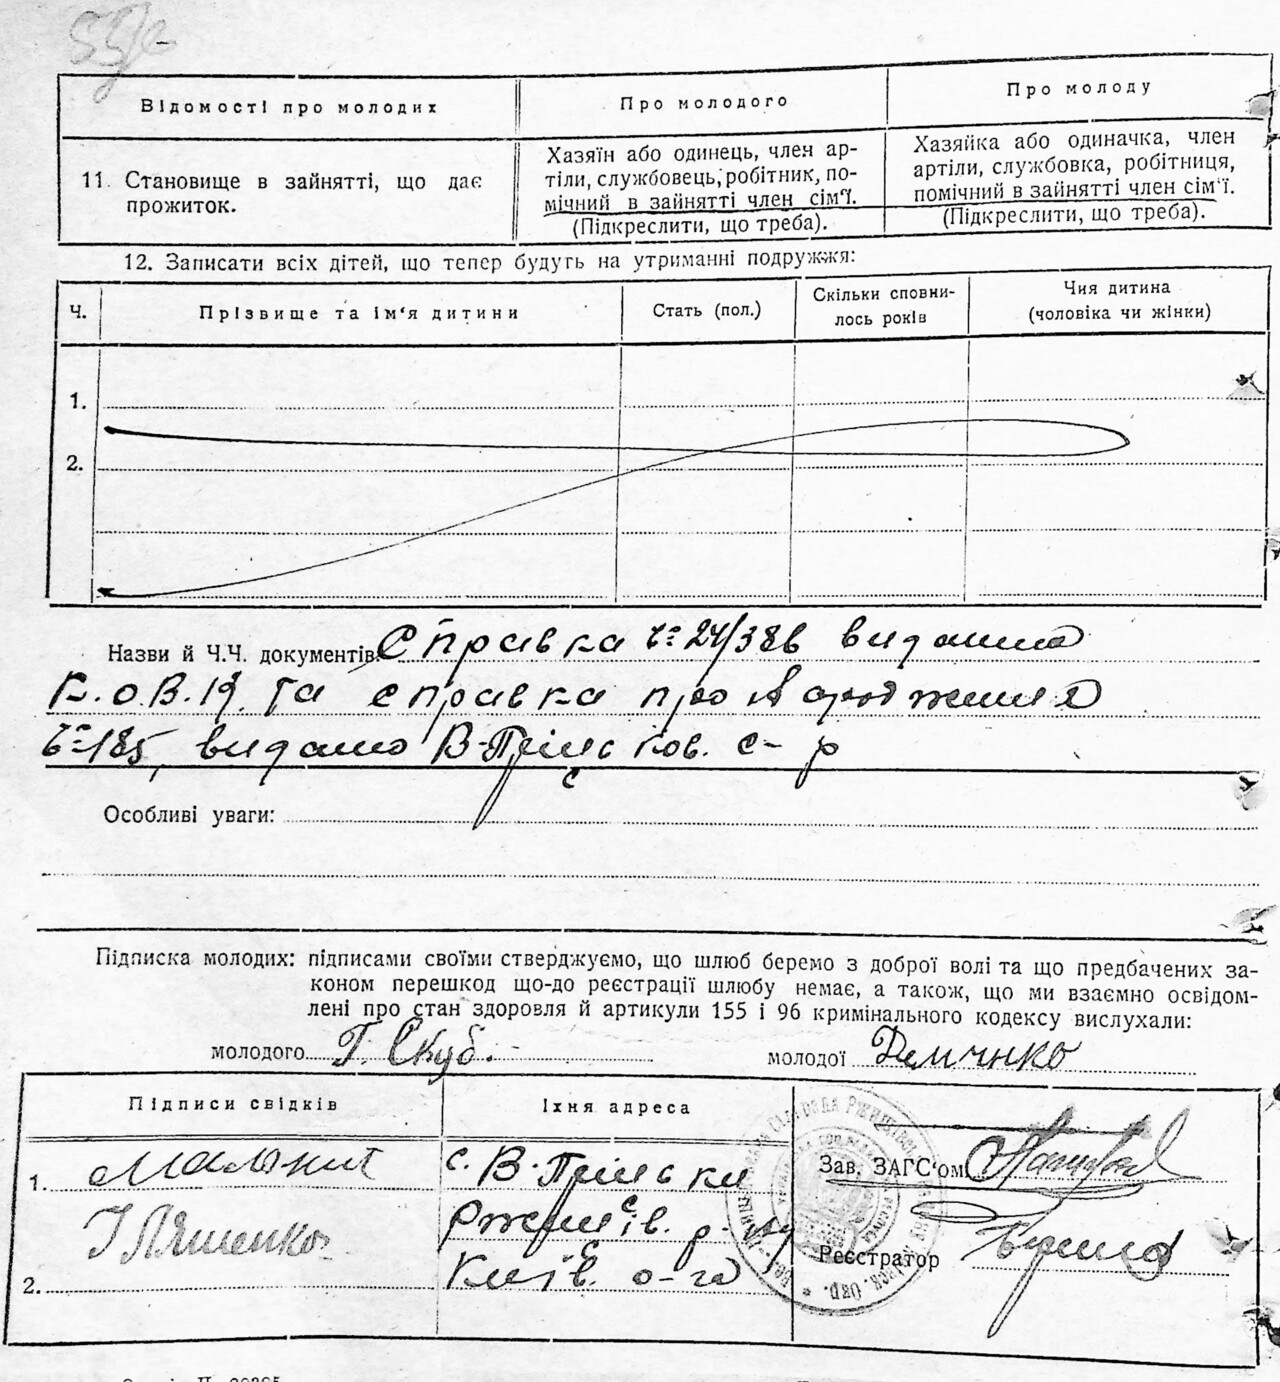 Відомості про молодих
Про молодого
Про молоду
11. Становище в зайнятті, що дає
прожиток.
Хазяїн або одинець, член ар-
тіли, службовець, робітник, по-
мічний в зайнятті член сім'ї.
(Підкреслити, що треба).
Хазяйка або одиначка, член
артіли, службовка, робітниця,
помічний в зайнятті член сім'ї.
(Підкреслити, що треба).
12. Записати всіх дітей, що тепер будуть на утриманні подружжя:
Ч.
Прізвище та ім'я дитини
Стать (пол.)
Скільки сповни-
лось років
Чия дитина
(чоловіка чи жінки)
1.
2.
Назви й Ч.Ч. документів: Справка видана
та справка про народження
видано В-Пріцьков. с-р
Особливі уваги:
Підписка молодих: підписами своїми стверджуємо, що шлюб беремо з доброї волі та що предбачених за-
коном перешкод що-до реєстрації шлюбу немає, а також, що ми взаємно освідом-
лені про стан здоровля й артикули 155 і 96 кримінального кодексу вислухали:
молодого Г. Скуб.
молодої Демчнко
Підписи свідків
Їхня адреса
1. с. В-Пріцьки
І Ляшенко
Ржищів. р-ну
2. Київ. о-га
Зав. ЗАГС'ом
Реєстратор